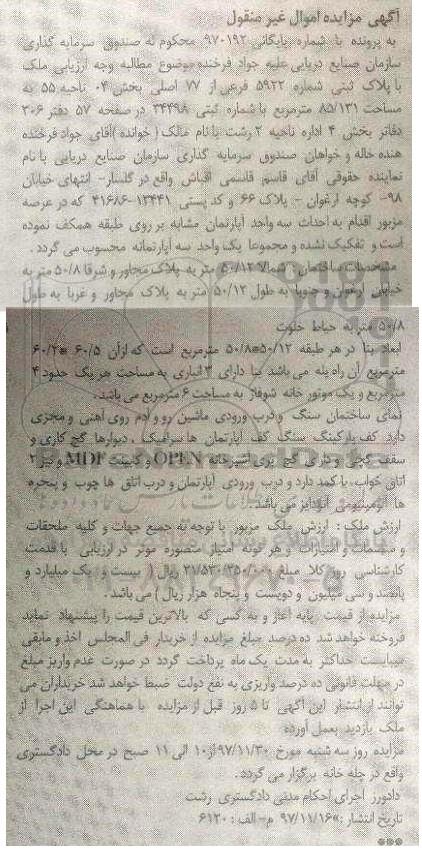 آگهی مزایده اموال غیر منقول
به پرونده با شماره بایگانی ۹۷۰۱۹۲ محکوم له صندوق سرمایه گذاری
سازمان صنایع دریایی علیه جواد فرخنده موضوع مطالبه وجه ارزیابی ملک
با پلاک ثبتی شماره ۵۹۲۲ فرعی از ۷۷ اصلی بخش ۰۴ ناحیه ۵۵ به
مساحت ۸۵/۱۳۱ مترمربع با شماره ثبتی ۳۴۴۹۸ در صفحه ۵۷ دفتر ۳۰۶
دفاتر بخش ۴ اداره ناحیه ۲ رشت با نام مالک (خوانده) آقای جواد فرخنده
هنده خاله و خواهان صندوق سرمایه گذاری سازمان صنایع دریایی با نام
نماینده حقوقی آقای قاسم قاسمی اقباش واقع در گلسار- انتهای خیابان
۹۸- کوچه ارغوان - پلاک ۶۶ و کد پستی ۱۳۴۴۱-۴۱۶۸۶ که در عرصه
مزبور اقدام به احداث سه واحد آپارتمان مشابه بر روی طبقه همکف نموده
است و تفکیک نشده و مجموعا یک واحد سه آپارتمانه محسوب می گردد.
مشخصات ساختمان: شمالا ۵۰/۱۲ متر به پلاک مجاور و شرقا ۵۰/۸ متر به
خیابان ارغوان و جنوبا به طول ۵۰/۱۲ متر به پلاک مجاور و غربا به طول
۵۰/۸ متر به حیاط خلوت
ابعاد بنا در هر طبقه ۵۰/۱۲*۵۰/۸ مترمربع است که از آن ۶۰/۵ * ۶۰/۲
مترمربع آن راه پله می باشد بنا دارای ۳ انباری به مساحت هر یک حدود ۴
مترمربع و یک موتور خانه شوفاژ به مساحت ۶ مترمربع می باشد.
نمای ساختمان سنگ و درب ورودی ماشین رو و آدم روی آهنی و مجزی
دارد کف پارکینگ سنگ کف آپارتمان ها سرامیک ، دیوارها گچ کاری و
سقف گچی و دارای گچ بری آشپزخانه OPEN و کابینت MDF و نیز ۲
اتاق خواب با کمد دارد و درب ورودی آپارتمان و درب اتاق ها چوب و پنجره
ها آلومینیومی آنودایز می باشد.
ارزش ملک : ارزش ملک مزبور با توجه به جمیع جهات و کلیه ملحقات
و منضمات و امتیازات و هر گونه امتیاز متصوره موثر در ارزیابی با قدمت
کارشناسی روز کلا مبلغ ۲۱/۵۳۰/۲۵۰/۰۰۰ ریال (بیست و یک میلیارد و
پانصد و سی میلیون و دویست و پنجاه هزار ریال) می باشد.
مزایده از قیمت پایه آغاز و به کسی که بالاترین قیمت را پیشنهاد نماید
فروخته خواهد شد ده درصد مبلغ مزایده از خریدار فی المجلس اخذ و مابقی
میبایست حداکثر به مدت یک ماه پرداخت گردد در صورت عدم واریز مبلغ
در مهلت قانونی ده درصد واریزی به نفع دولت ضبط خواهد شد خریداران می
توانند از انتشار این آگهی تا ۵ روز قبل از مزایده با هماهنگی این اجرا از
ملک بازدید بعمل آورده
مزایده روز سه شنبه مورخ ۹۷/۱۱/۳۰ از ۱۰ الی ۱۱ صبح در محل دادگستری
واقع در چله خانه برگزار می گردد.
دادورز اجرای احکام مدنی دادگستری رشت
تاریخ انتشار: ۹۷/۱۱/۱۶ م- الف : ۶۱۲۰